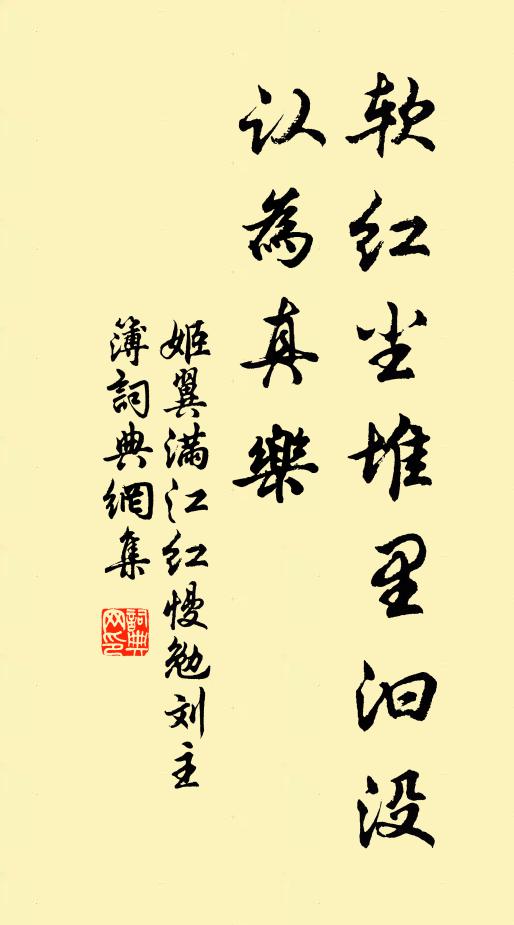 软红尘堆里汩没
认為真樂
姬翼满江红慢勉刘主
簿詞典網集
詞典网印